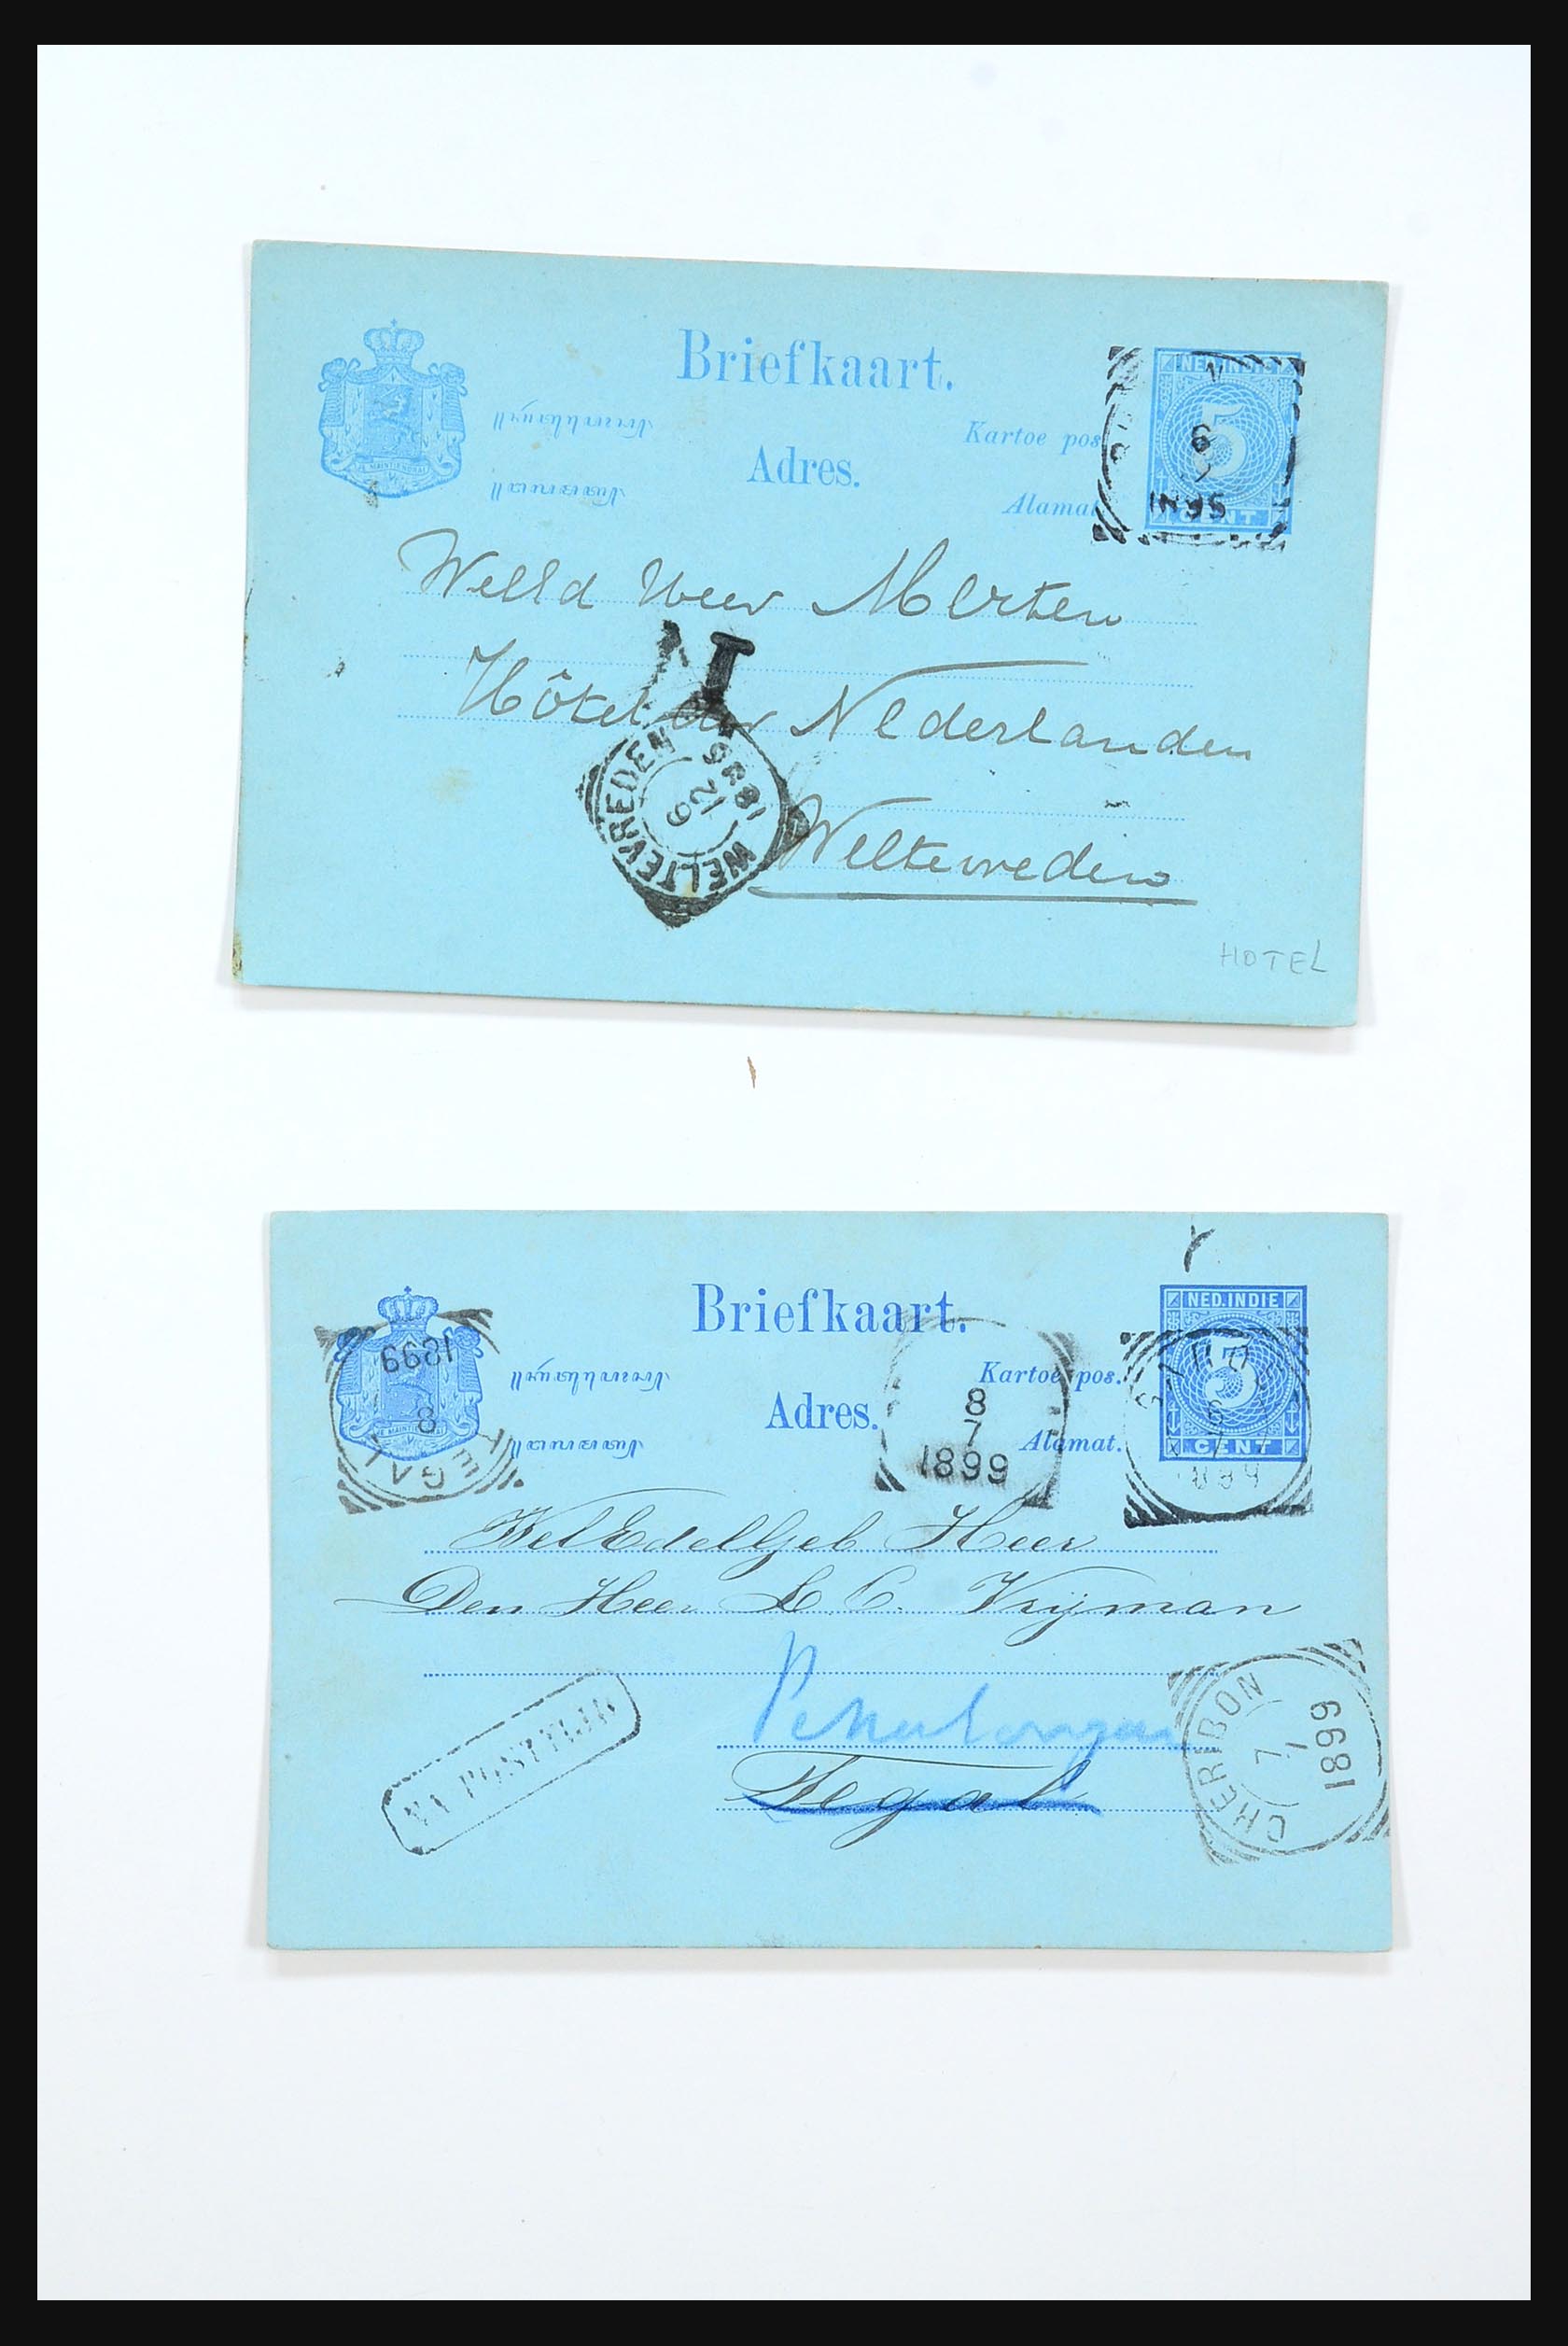 Briefkaart.
Adres.
Kartoe pos
Alamat
NED. INDIE
5
CENT
JE MAINTIENDRAI
Hôtel der Nederlanden
Weltevreden
WELTEVREDEN
12
6
HOTEL
Briefkaart.
Adres.
Kartoe pos.
Alamat.
NED. INDIE
5
CENT
JE MAINTIENDRAI
1899
8
TEGAL
8
7
1899
WelEdelGeb Heer
Den Heer L. C. Vrijman
Pekalongan
Tegal
NA POSTTIJD
CHERIBON
7
7
1899